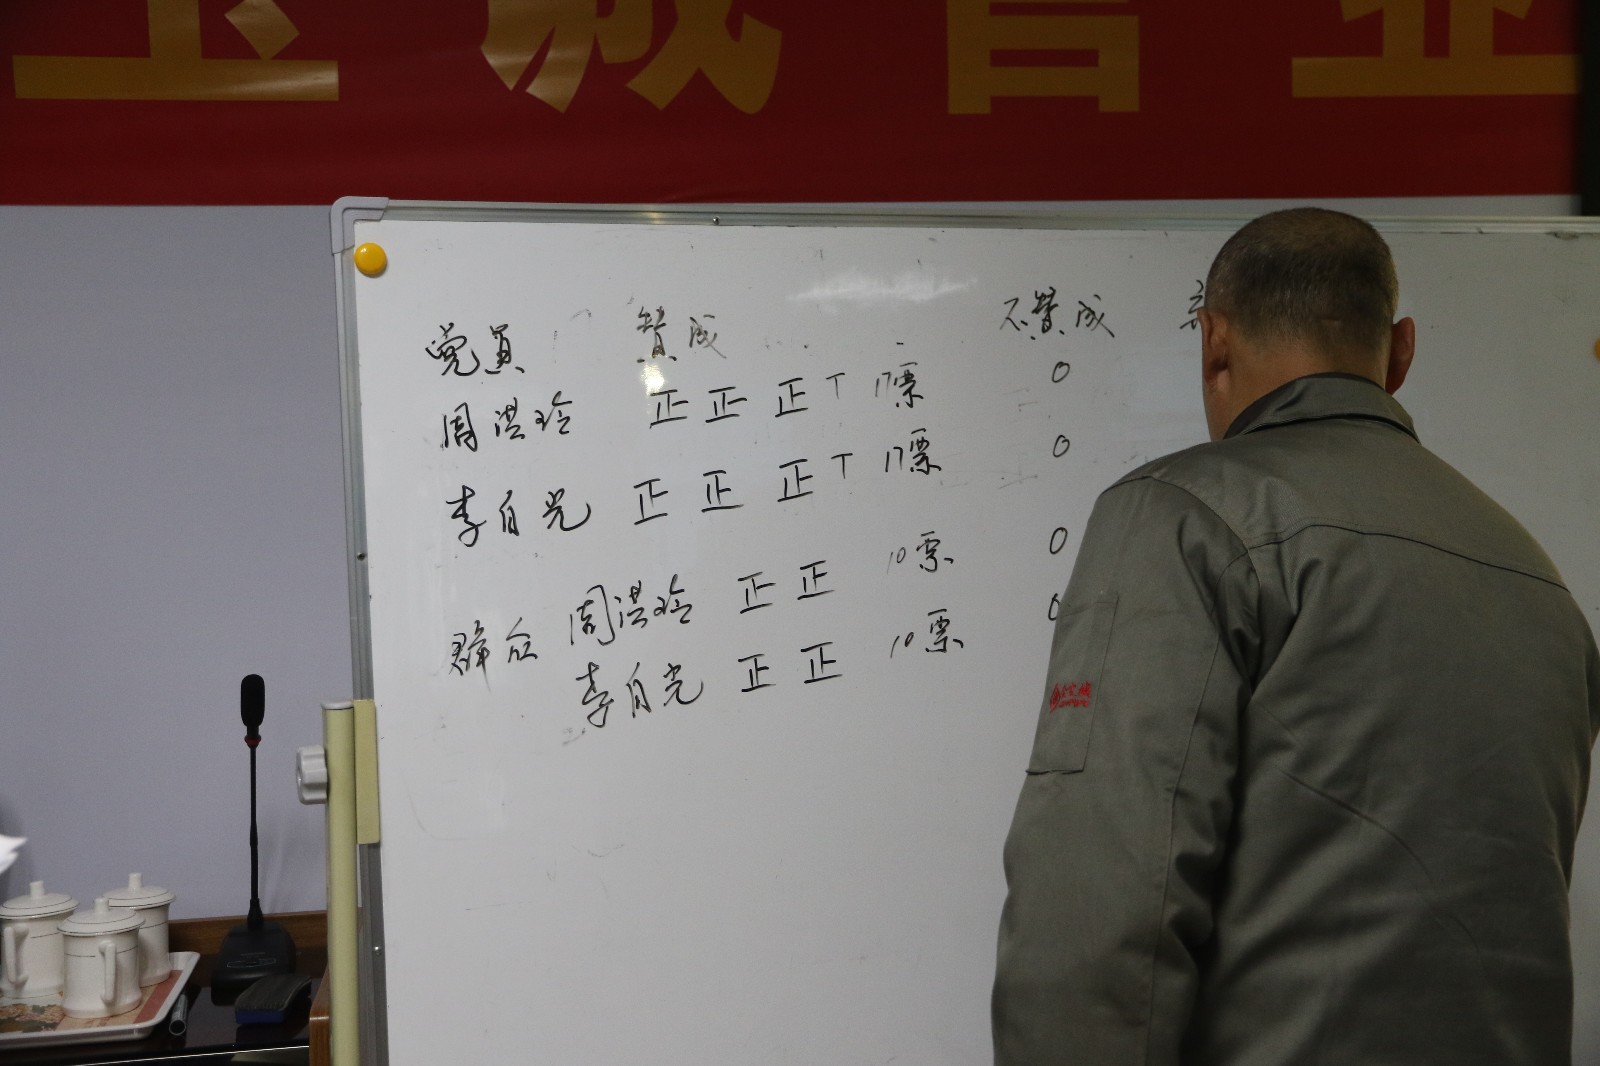 党員 赞成 不赞成
周洪玲 正 正 正 丅 17票 0
李自光 正 正 正 丅 17票 0
群众 周洪玲 正 正 10票 0
李自光 正 正 10票 0